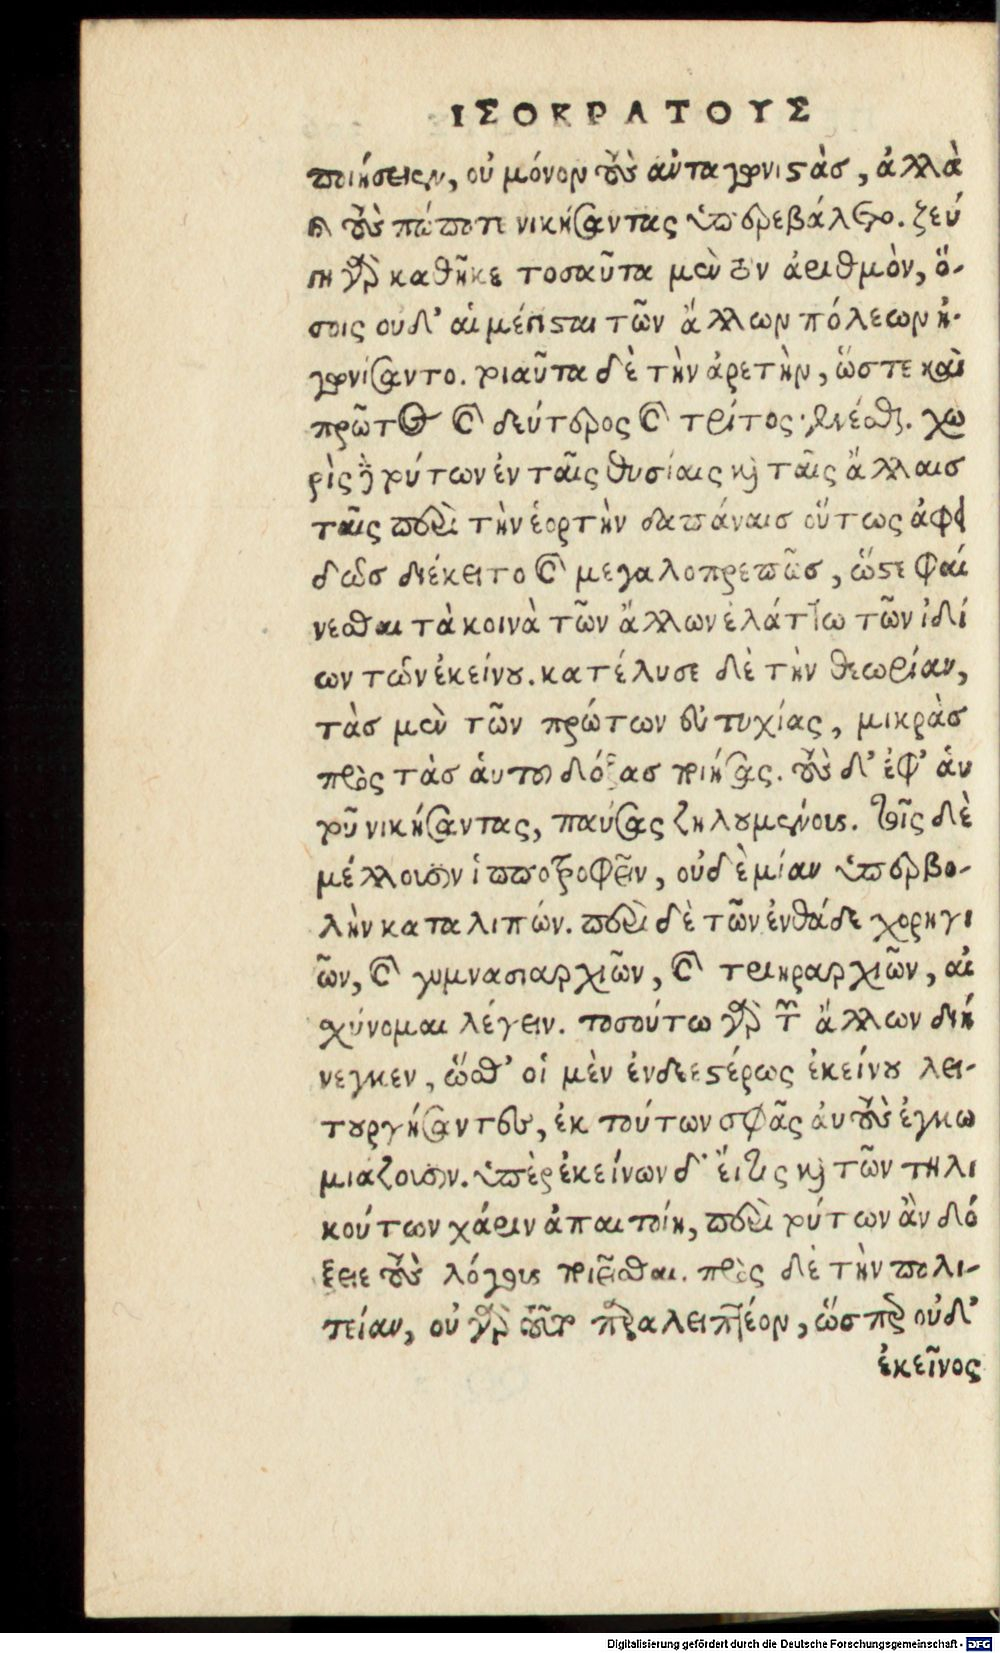 ΙΣΟΚΡΑΤΟΥΣ
ποιήσειεν, οὐ μόνον τοὺς ἀνταγωνιστὰς, ἀλλὰ
καὶ τοὺς πώποτε νικήσαντας ὑπερεβάλετο. ζεύ
γη γὰρ καθῆκε τοσαῦτα μὲν τὸν ἀριθμὸν, ὅ-
σοις οὐδ' αἱ μέγισται τῶν ἄλλων πόλεων ἠ-
γωνίσαντο. τοιαῦτα δὲ τὴν ἀρετὴν, ὥστε καὶ
πρῶτος καὶ δεύτερος καὶ τρίτος γενέσθαι. χω
ρὶς δὲ τούτων ἐν ταῖς θυσίαις καὶ ταῖς ἄλλαις
ταῖς περὶ τὴν ἑορτὴν δαπάναις οὕτως ἀφει
δῶς διέκειτο καὶ μεγαλοπρεπῶς, ὥστε φαί
νεσθαι τὰ κοινὰ τῶν ἄλλων ἐλάττω τῶν ἰδί
ων τῶν ἐκείνου. κατέλυσε δὲ τὴν θεωρίαν,
τὰς μὲν τῶν πρώτων εὐτυχίας, μικρὰς
πρὸς τὰς αὑτοῦ δόξας ποιήσας. τοὺς δ' ἐφ' αὑ
τοῦ νικήσαντας, παύσας ζηλουμένους. τοῖς δὲ
μέλλουσιν ἱπποτροφεῖν, οὐδὲ μίαν ὑπερβο-
λὴν καταλιπών. περὶ δὲ τῶν ἐνθάδε χορηγι
ῶν, καὶ γυμνασιαρχιῶν, καὶ τριηραρχιῶν, αἰ
σχύνομαι λέγειν. τοσούτω γὰρ τῶν ἄλλων διή
νεγκεν, ὥσθ' οἱ μὲν ἐνδεεστέρως ἐκείνου λει-
τουργήσαντες, ἐκ τούτων σφᾶς αὐτοὺς ἐγκω
μιάζουσιν. ὑπὲρ ἐκείνων δ' εἴ τις καὶ τῶν τηλι
κούτων χάριν ἀπαιτοίη, περὶ τούτων ἂν δό
ξειε τοὺς λόγους ποιεῖσθαι. πρὸς δὲ τὴν πολι-
τείαν, οὐ γὰρ παραλειπτέον, ὥσπερ οὐδ'
ἐκεῖνος
Digitalisierung gefördert durch die Deutsche Forschungsgemeinschaft - DFG